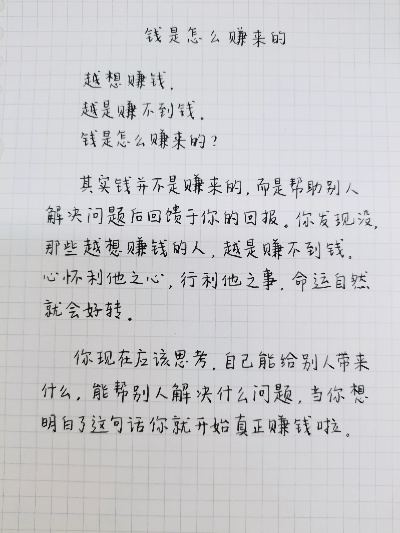 钱是怎么赚来的
越想赚钱,
越是赚不到钱.
钱是怎么赚来的?
其实钱并不是赚来的,而是帮助别人
解决问题后回馈于你的回报。你发现没,
那些越想赚钱的人,越是赚不到钱.
心怀利他之心,行利他之事.命运自然
就会好转。
你现在应该思考,自己能给别人带来
什么,能帮别人解决什么问题,当你想
明白了这句话你就开始真正赚钱啦。